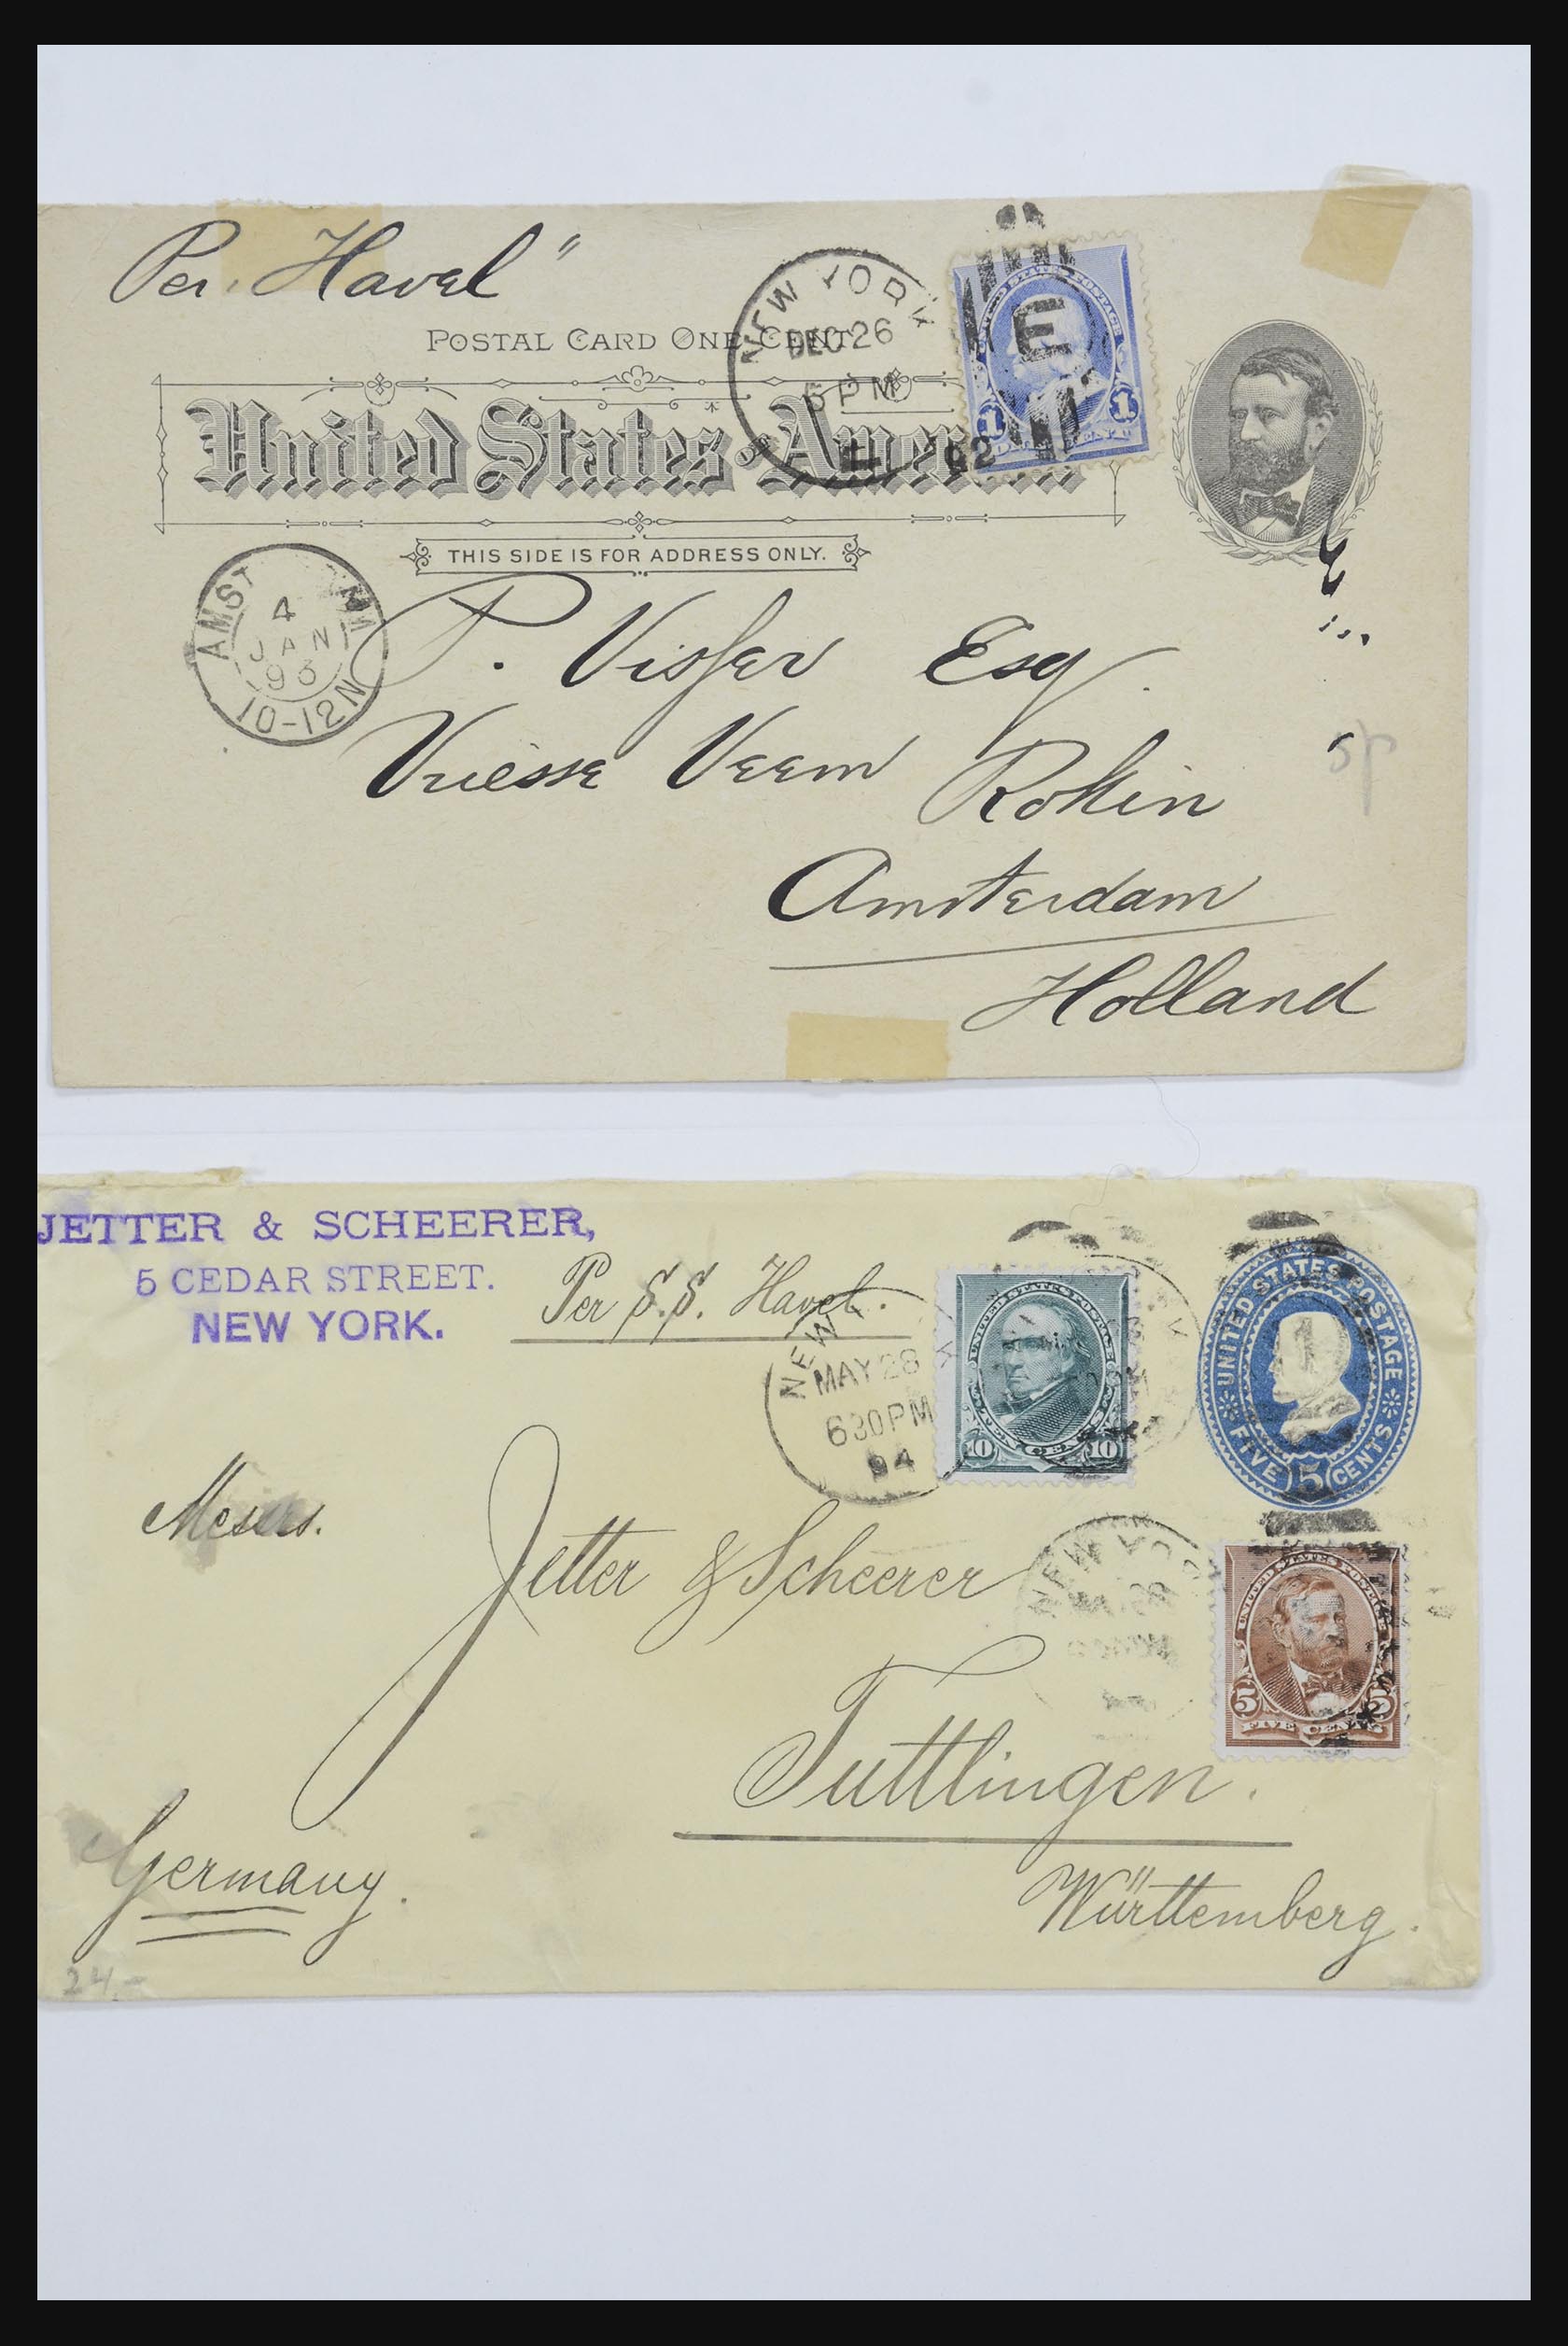 Per. Havel"
POSTAL CARD ONE CENT.
NEW YORK
DEC 26
5 PM
92
E
1 1
United States of Amer
THIS SIDE IS FOR ADDRESS ONLY.
AMST
4
JAN
93
10-12N
P. Visser Esq.
Vriesse Veem Rokin
Amsterdam
Holland
5p
JETTER & SCHEERER,
5 CEDAR STREET.
NEW YORK.
Per S.S. Havel.
NEW Y
MAY 28
630PM
94
10 10
UNITED STATES POSTAGE
FIVE 5 CENTS
1
Messrs.
Jetter & Scheerer
NEW YOR
UNITED STATES POSTAGE
5 5
FIVE CENTS
Tuttlingen.
Germany.
Württemberg.
24,-